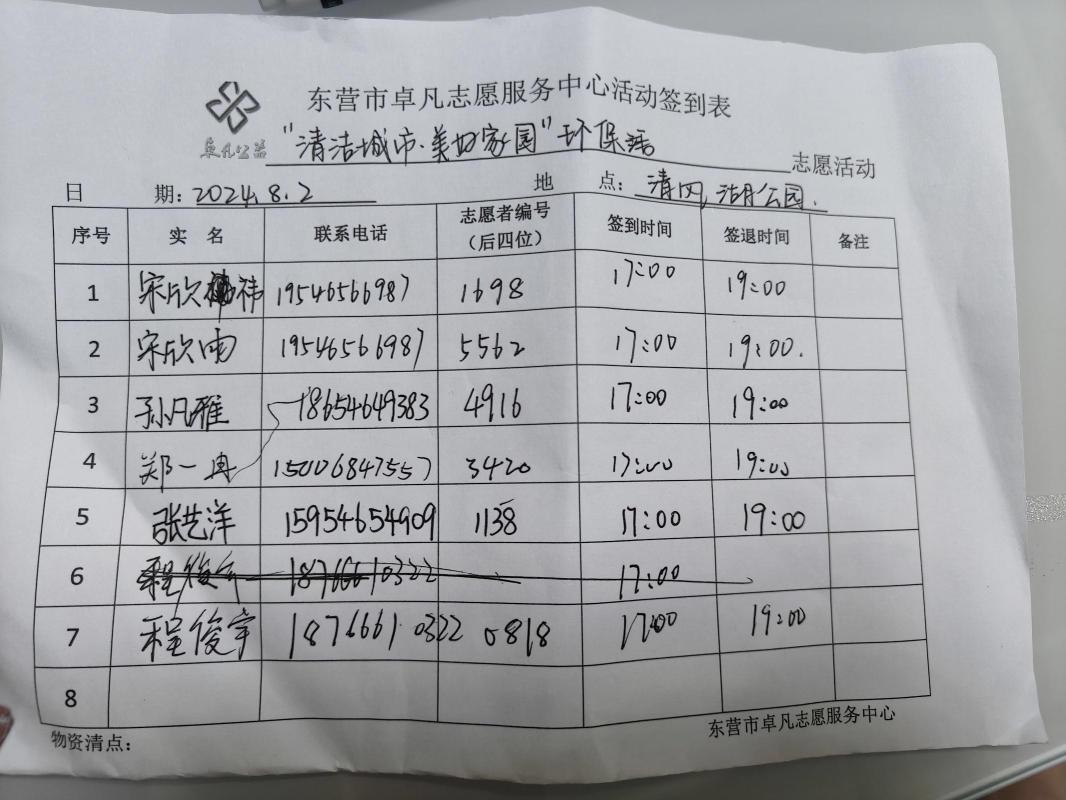 东营市卓凡志愿服务中心活动签到表
卓凡公益 "清洁城市·美好家园"环保 志愿活动
日 期：2024.8.2 地 点：清风湖公园.
序号 实 名 联系电话 志愿者编号（后四位） 签到时间 签退时间 备注
1 宋欣祎 19546566987 1698 17:00 19:00
2 宋欣雨 19546566987 5562 17:00 19:00.
3 孙凡雅 18654649383 4916 17:00 19:00
4 郑一冉 15006847557 3420 17:00 19:00
5 张艺洋 15954654909 1138 17:00 19:00
6 程俊宇 18766610322 17:00
7 程俊宇 18766610322 0818 17:00 19:00
8
物资清点：
东营市卓凡志愿服务中心